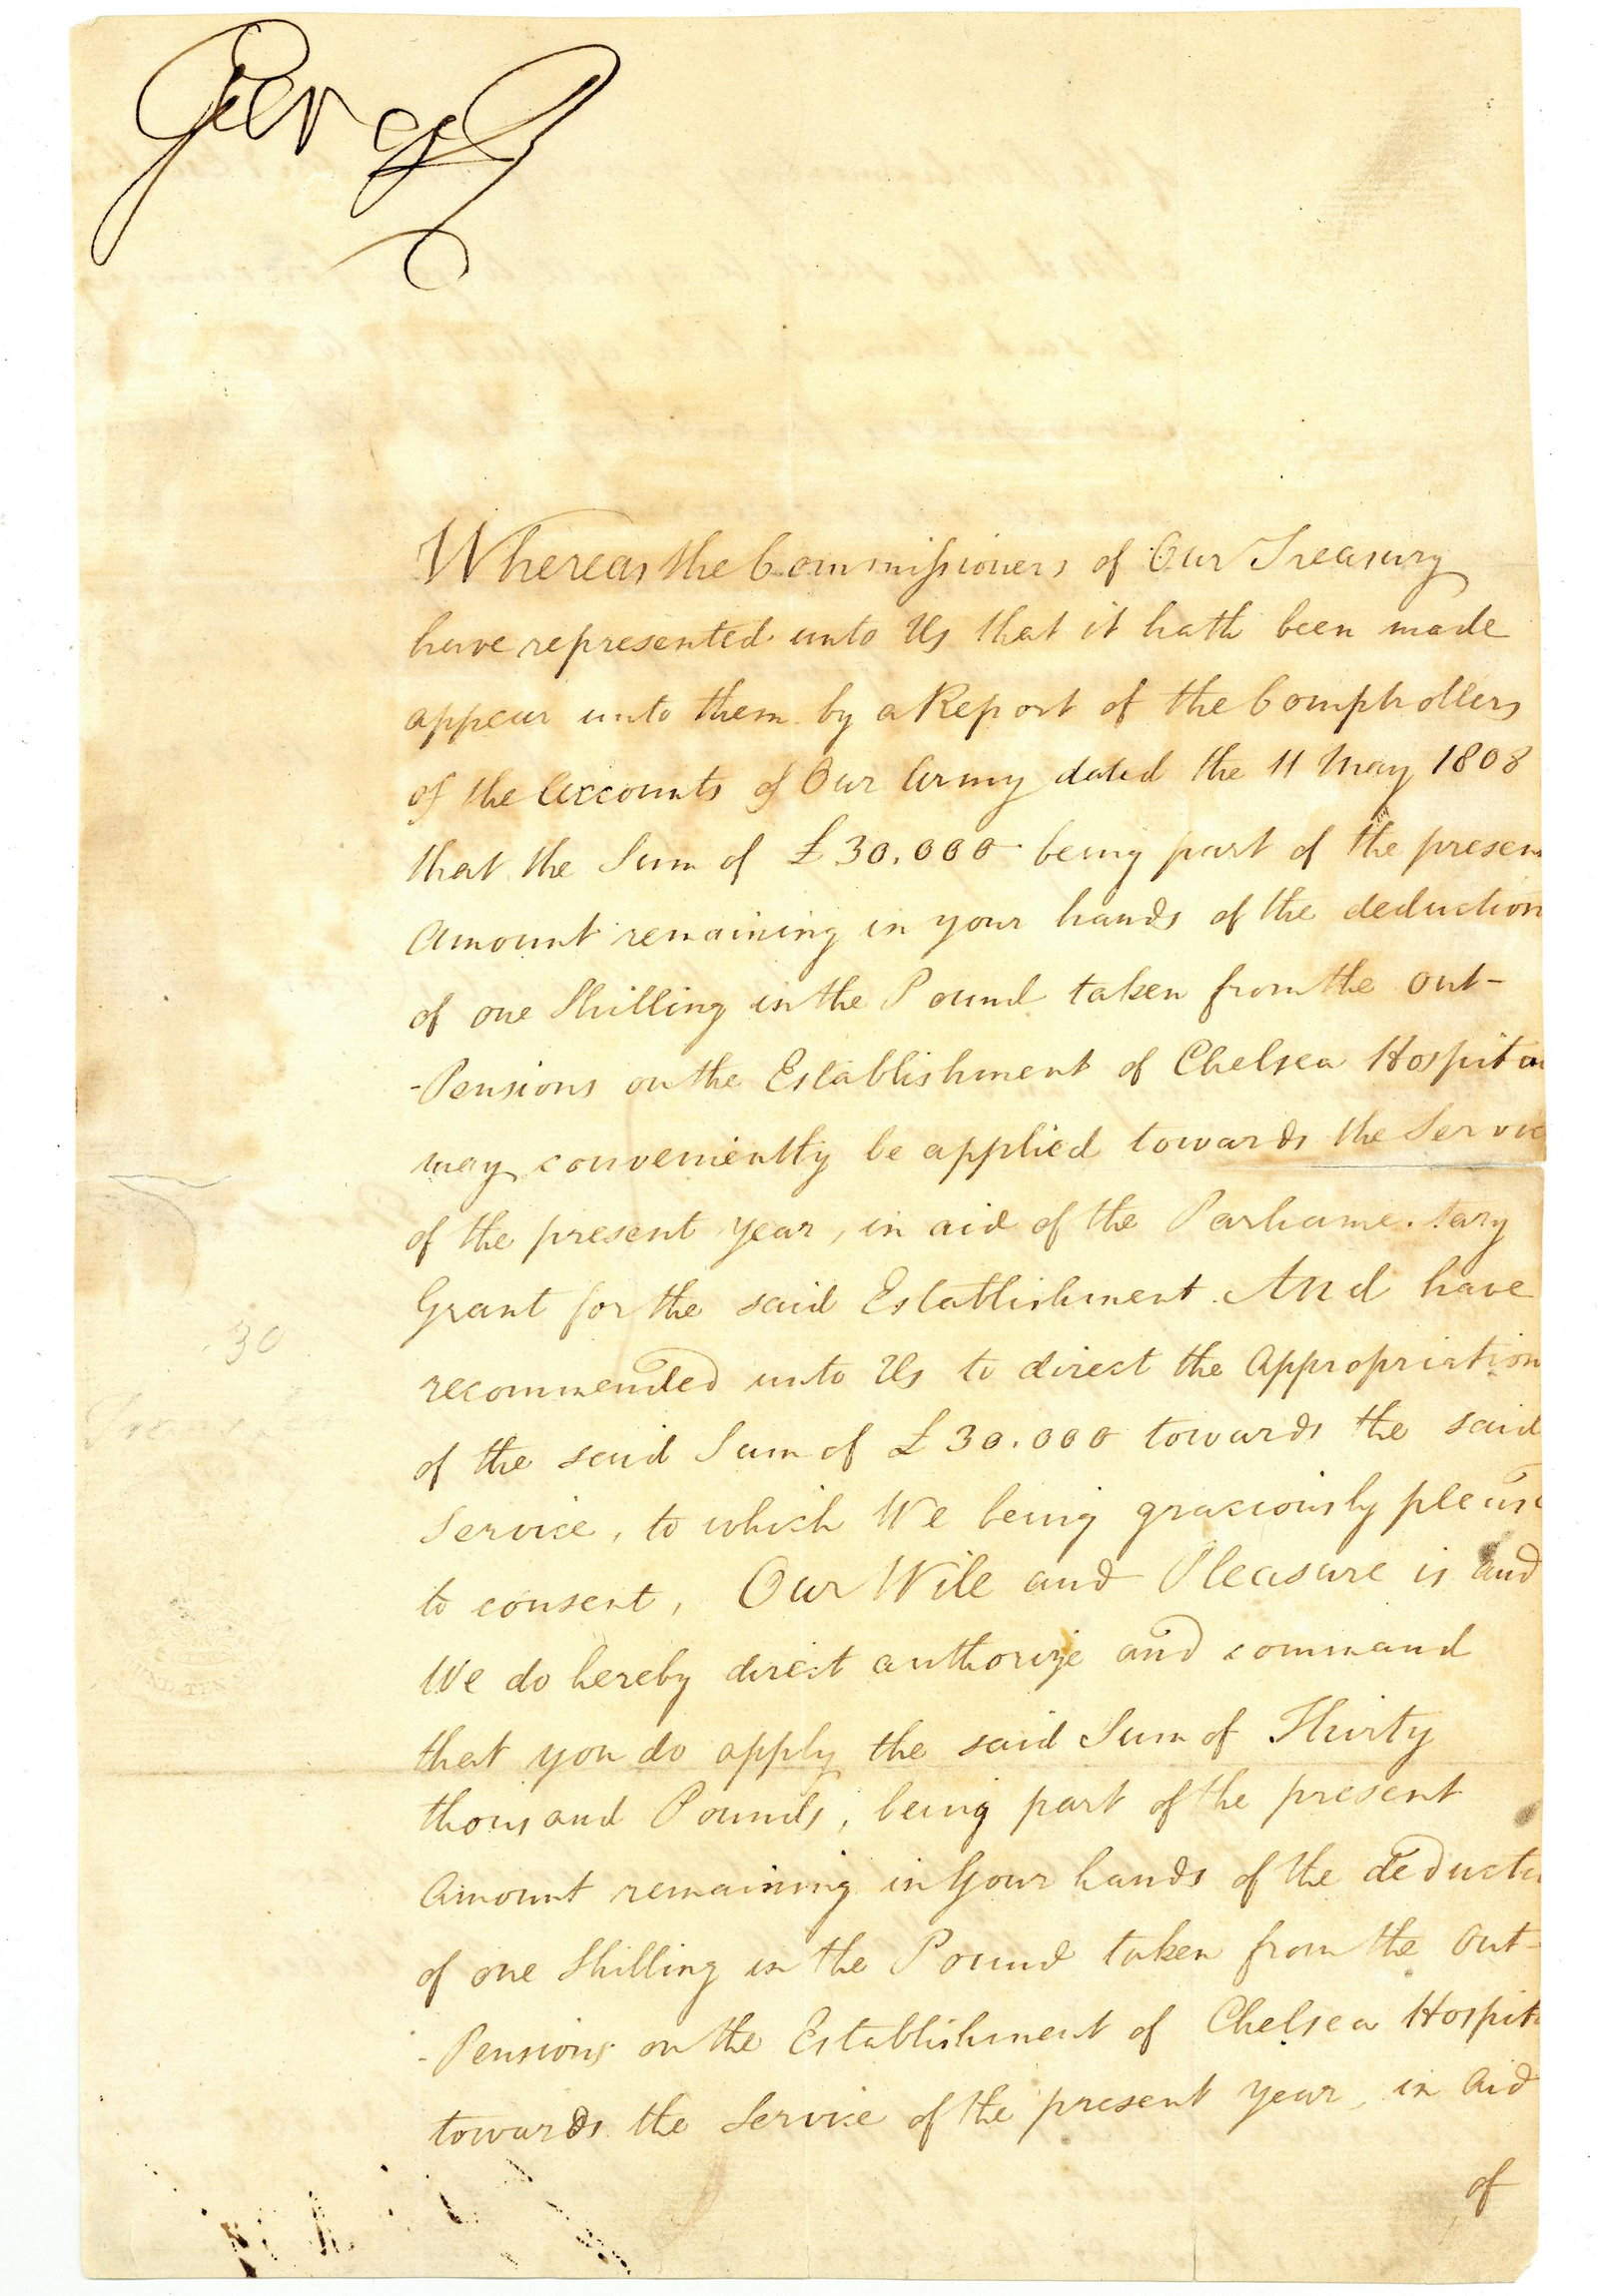 George R
Whereas the Commissioners of Our Treasury
have represented unto Us that it hath been made
appear unto them by a Report of the Comptrollers
of the Accounts of Our Army dated the 11 May 1808
that the Sum of £30,000 being part of the presen
Amount remaining in your hands of the deduction
of one Shilling in the Pound taken from the Out-
-Pensions on the Establishment of Chelsea Hospita
may conveniently be applied towards the Servic
of the present Year, in aid of the Parliame tary
Grant for the said Establishment. And have
recommended unto Us to direct the Appropriation
of the said Sum of £30.000 towards the said
Service, to which We being graciously please
to consent, Our Will and Pleasure is and
We do hereby direct authorize and command
that you do apply the said Sum of Thirty
thousand Pounds, being part of the present
Amount remaining in Your hands of the deducti
of one Shilling in the Pound taken from the Out-
-Pensions on the Establishment of Chelsea Hospit
towards the Service of the present Year, in Aid
of
30